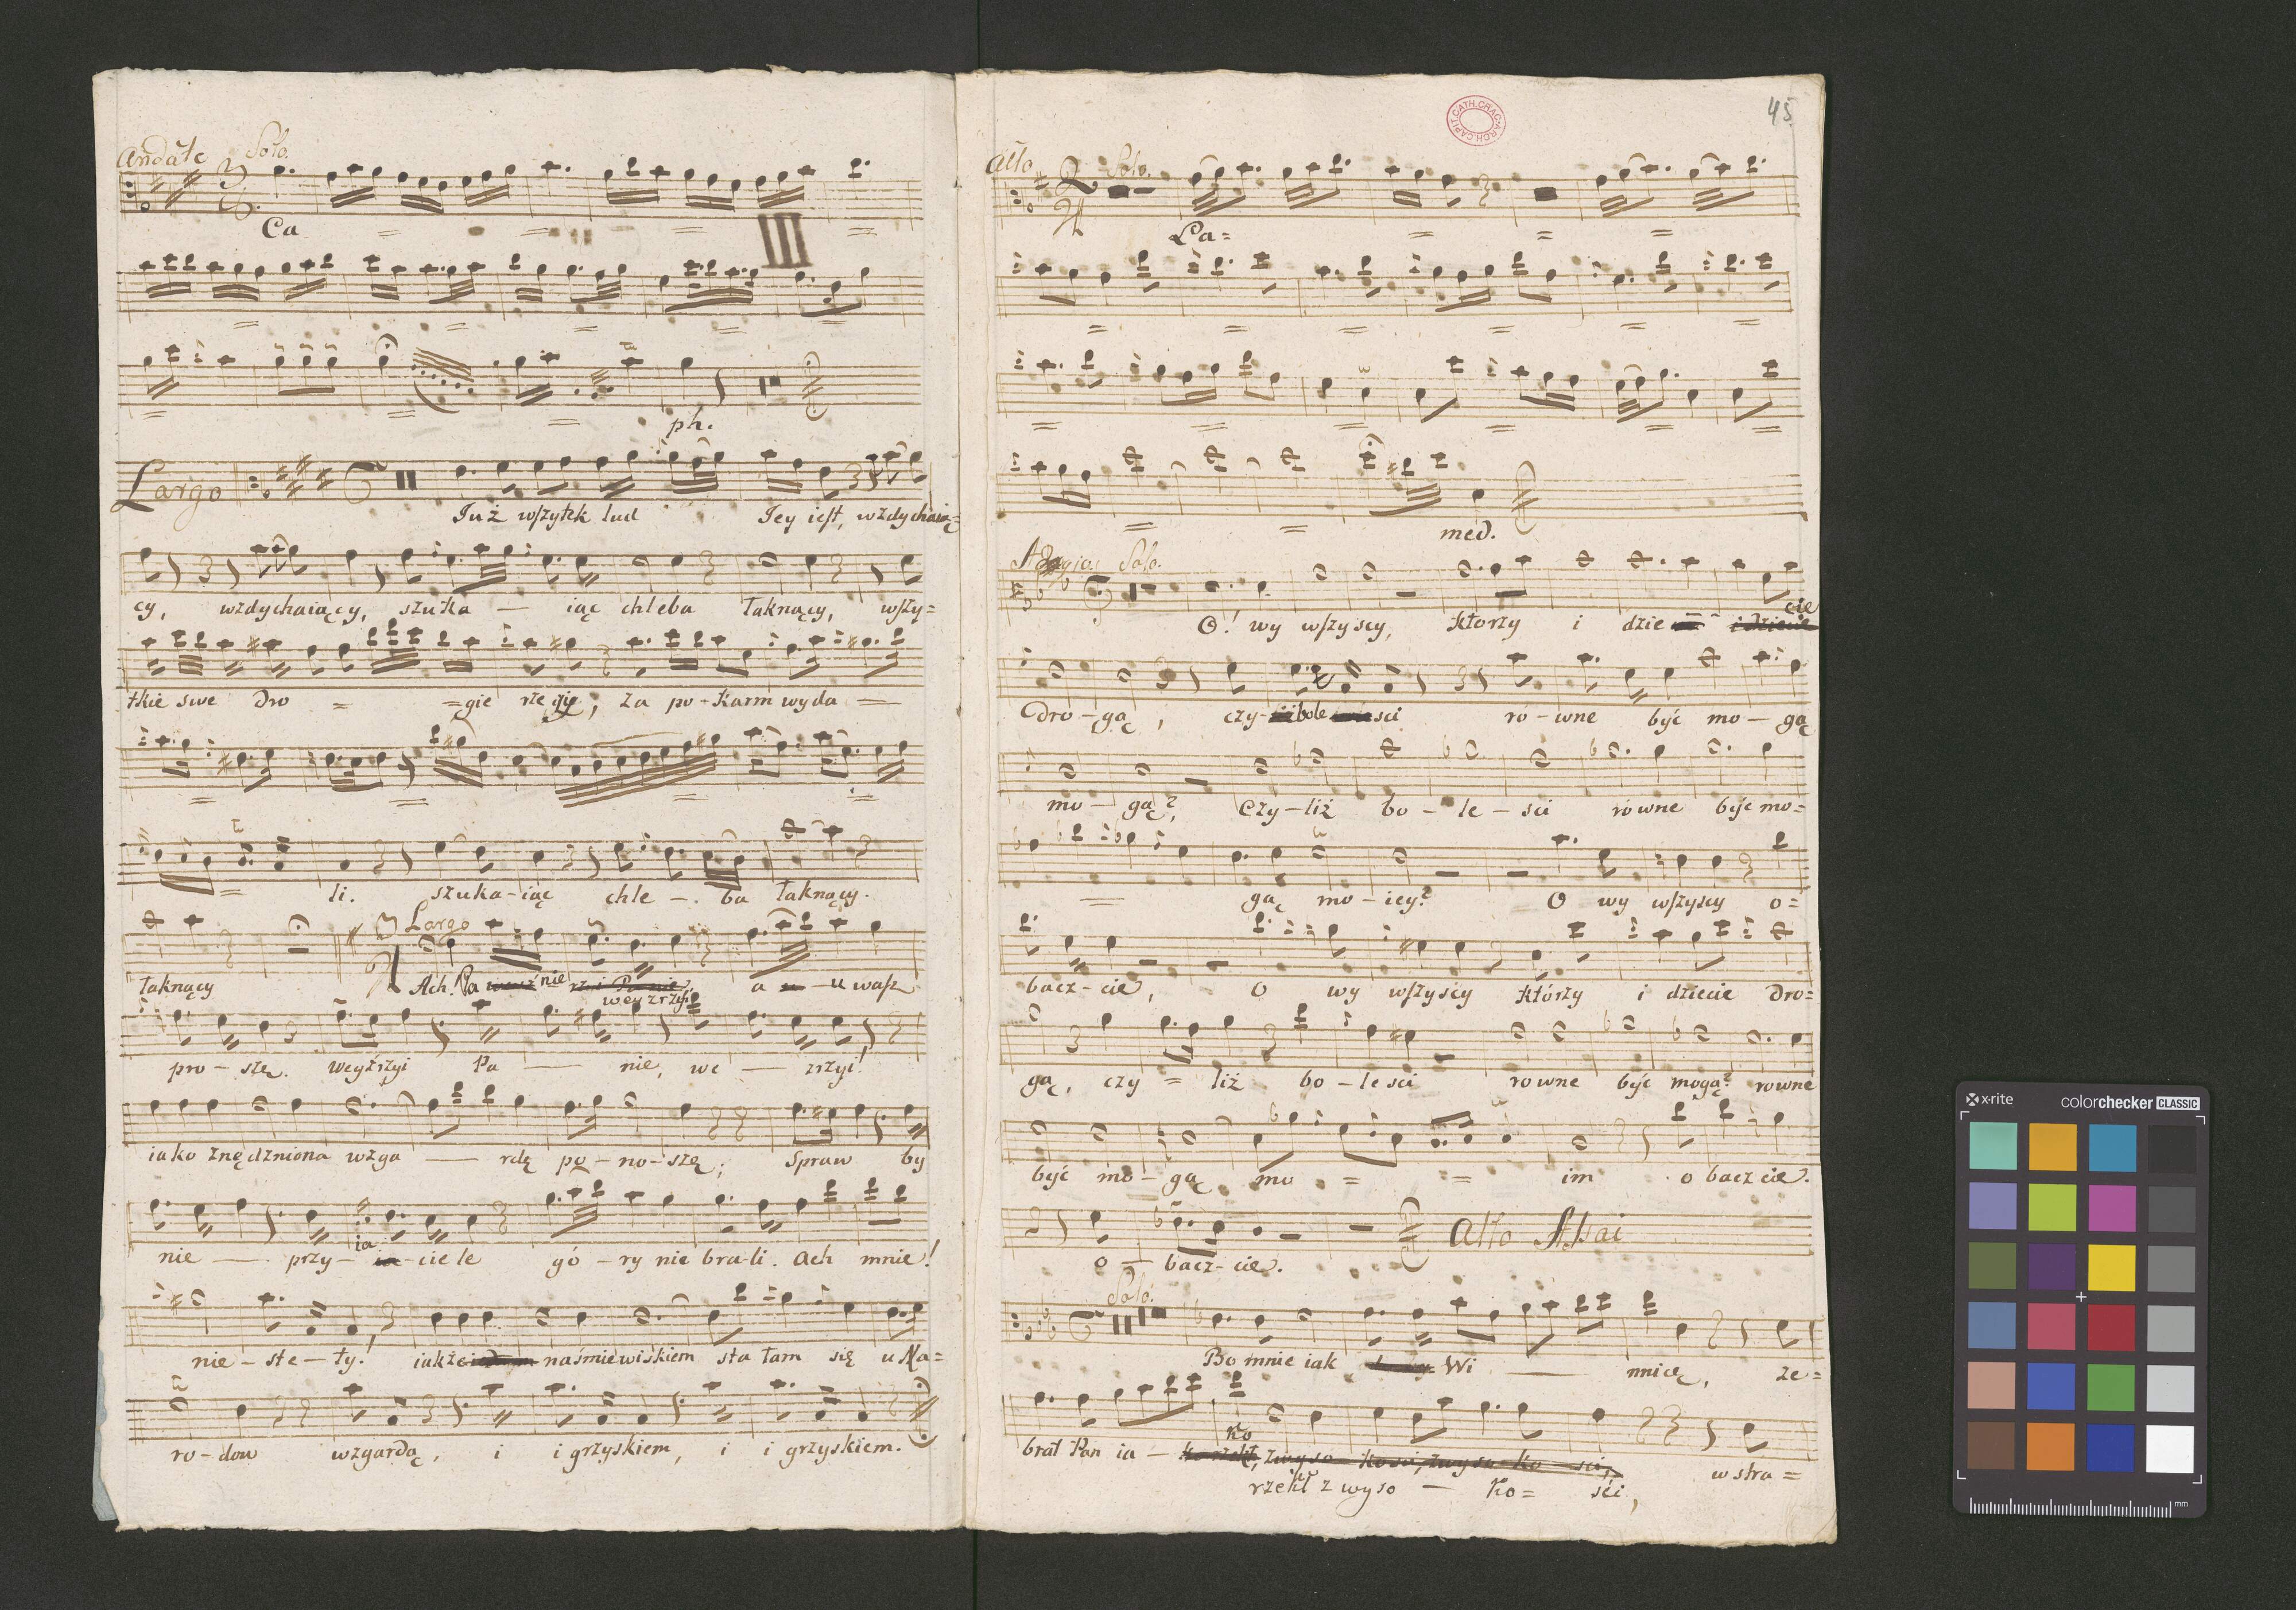 Andãte Solo.
Ca = = = =
III
= = = = =
= = = ph.
Largo
Już wszytek lud Jey iest, wzdychaią=
cy, wzdychaiący, szuka — iąc chleba łaknący, wszy=
tkie swe dro = =gie rzeczy, za po-karm wyda —
= = = =
= li. szuka-iąc chle —. ba łaknący.
Largo
łaknący Ach! Pa nie a u wasz
weyzrzyi
pro-szę. weyźrzyi Pa — nie, we — zrzyi!
iako znędzniona wzga — rdę po-no-szę; Spraw by
nie —. przy- ia -ciele gó-ry nie bra-li. Ach mnie!
nie-ste-ty! iakże naśmiewiskiem sta tam się u Na=
ro-dow wzgardą, i igrzyskiem, i igrzyskiem.
45
ARCH.CAPIT.CATH.CRAC.
Allo Solo.
La= = = =
= = = = = =
= = = = =
= = med.
Adagio. Solo.
O! wy wszyscy, ktorzy i dzie cie
Dro-gą, czy- bole sci ró-wne być mo-gą
mo-gą? Czy-liż bo-le-sci równe być mo=
= gą mo-iey? O wy wszyscy o=
bacz-cie, O wy wszyscy którzy i dziecie Dro=
gą, czy = liż bo-le sci rowne być mogą? rowne
być mo-gą mo = = im o baczcie.
o — bacz-cie. Allo Assai
Solo.
Bo mnie iak Wi — nnicę, ze=
brał Pan ia- ko wstra=
rzekł z wyso — ko= ści,
x-rite colorchecker CLASSIC
mm